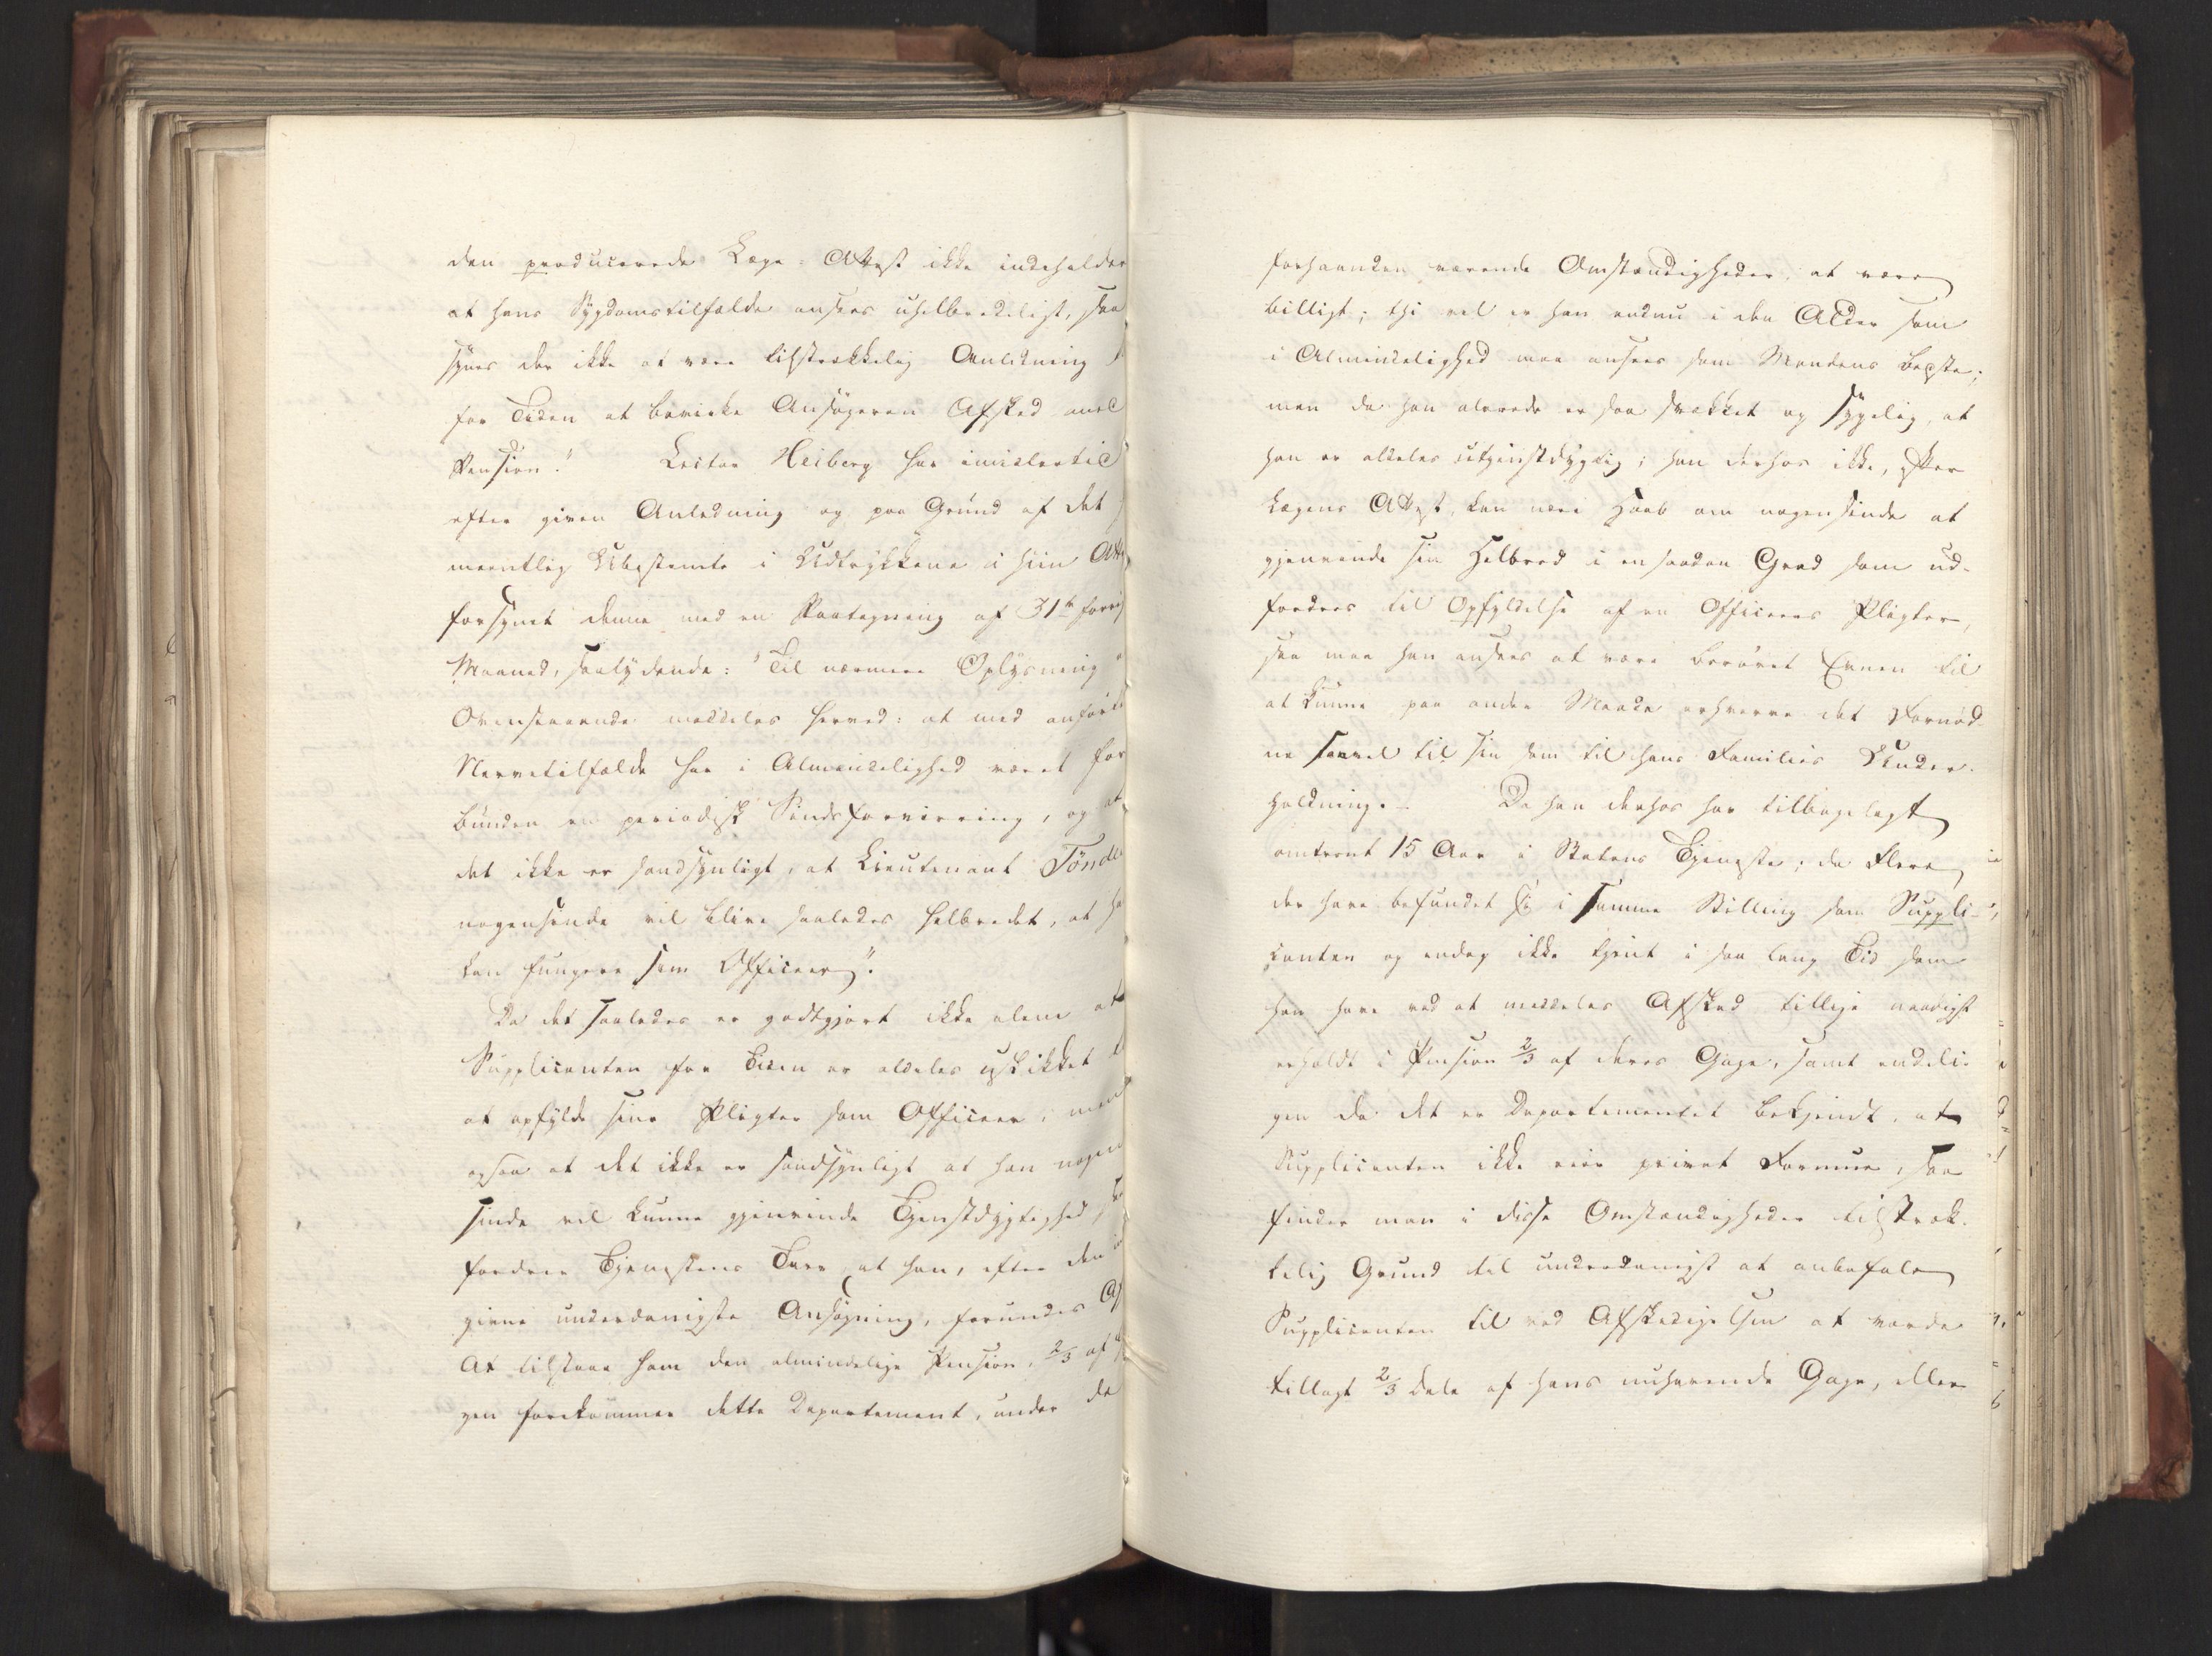 den producerede Læge-Attest ikke indeholder
at hans Sygdomstilfælde ansees uhelbredeligt, saa
synes der ikke at være tilstrækkelig Anledning
for Tiden at bevirke Ansøgeren Afsked med
Pension." Lector Heiberg har imidlertid
efter given Anledning og paa Grund af det
meentlig Ubestemte i Udtrykkene i hiin Att
forsynet denne med en Paategning af 31te forri
Maaned, saalydende: "Til nærmere Oplysning
Ovenstaaende meddeles herved: at med anførte
Nervetilfælde har i Almindelighed været for
bunden en periodisk Sindsforvirring, og at
det ikke er sandsynligt, at Lieutenant Tønde
nogensinde vil blive saaledes helbredet, at ha
kan fungere som Officeer".
Da det saaledes er godtgjort ikke alene at
Supplicanten for Tiden er aldeles uskikket t
at opfylde sine Pligter som Officeer, men
ogsaa at det ikke er sandsynligt at han nogen
sinde vil kunne gjenvinde Tjenstdygtighed, saa
fordrer Tjenestens Tarv at han, efter den in
givne underdanigste Ansøgning, forundes Af
At tilstaae ham den almindelige Pension, 2/3 af
gen forekommer dette Departement, under de
forhaanden værende Omstændigheder, at være
billigt; thi vel er han endnu i den Alder som
i Almindelighed maa ansees som Mandens bedste;
men da han allerede er saa svækket og sygelig, at
han er aldeles utjenstdygtig; han derhos ikke, efter
Lægens Attest, kan nære Haab om nogensinde at
gjenvinde sin Helbred i en saadan Grad som ud-
fordres til Opfyldelse af en Officeers Pligter,
saa maa han ansees at være berøvet Evnen til
at kunne paa anden Maade erhverve det Fornød-
ne saavel til sin som til hans Families Under-
holdning. – Da han derhos har tilbagelagt
omtrent 15 Aar i Statens Tjeneste; da Flere,
der have befundet sig i samme Stilling som Suppli-
canten og endog ikke tjent i saa lang Tid som
han have ved at meddeles Afsked tillige naadigst
erholdt i Pension 2/3 af deres Gage, samt endeli-
gen da det er Departementet bekjendt, at
Supplicanten ikke eier privat Formue, saa
finder man i disse Omstændigheder tilstræk-
kelig Grund til underdanigst at anbefale
Supplicanten til ved Afskedigelsen at vorde
tillagt 2/3 Dele af hans nuhavende Gage, eller